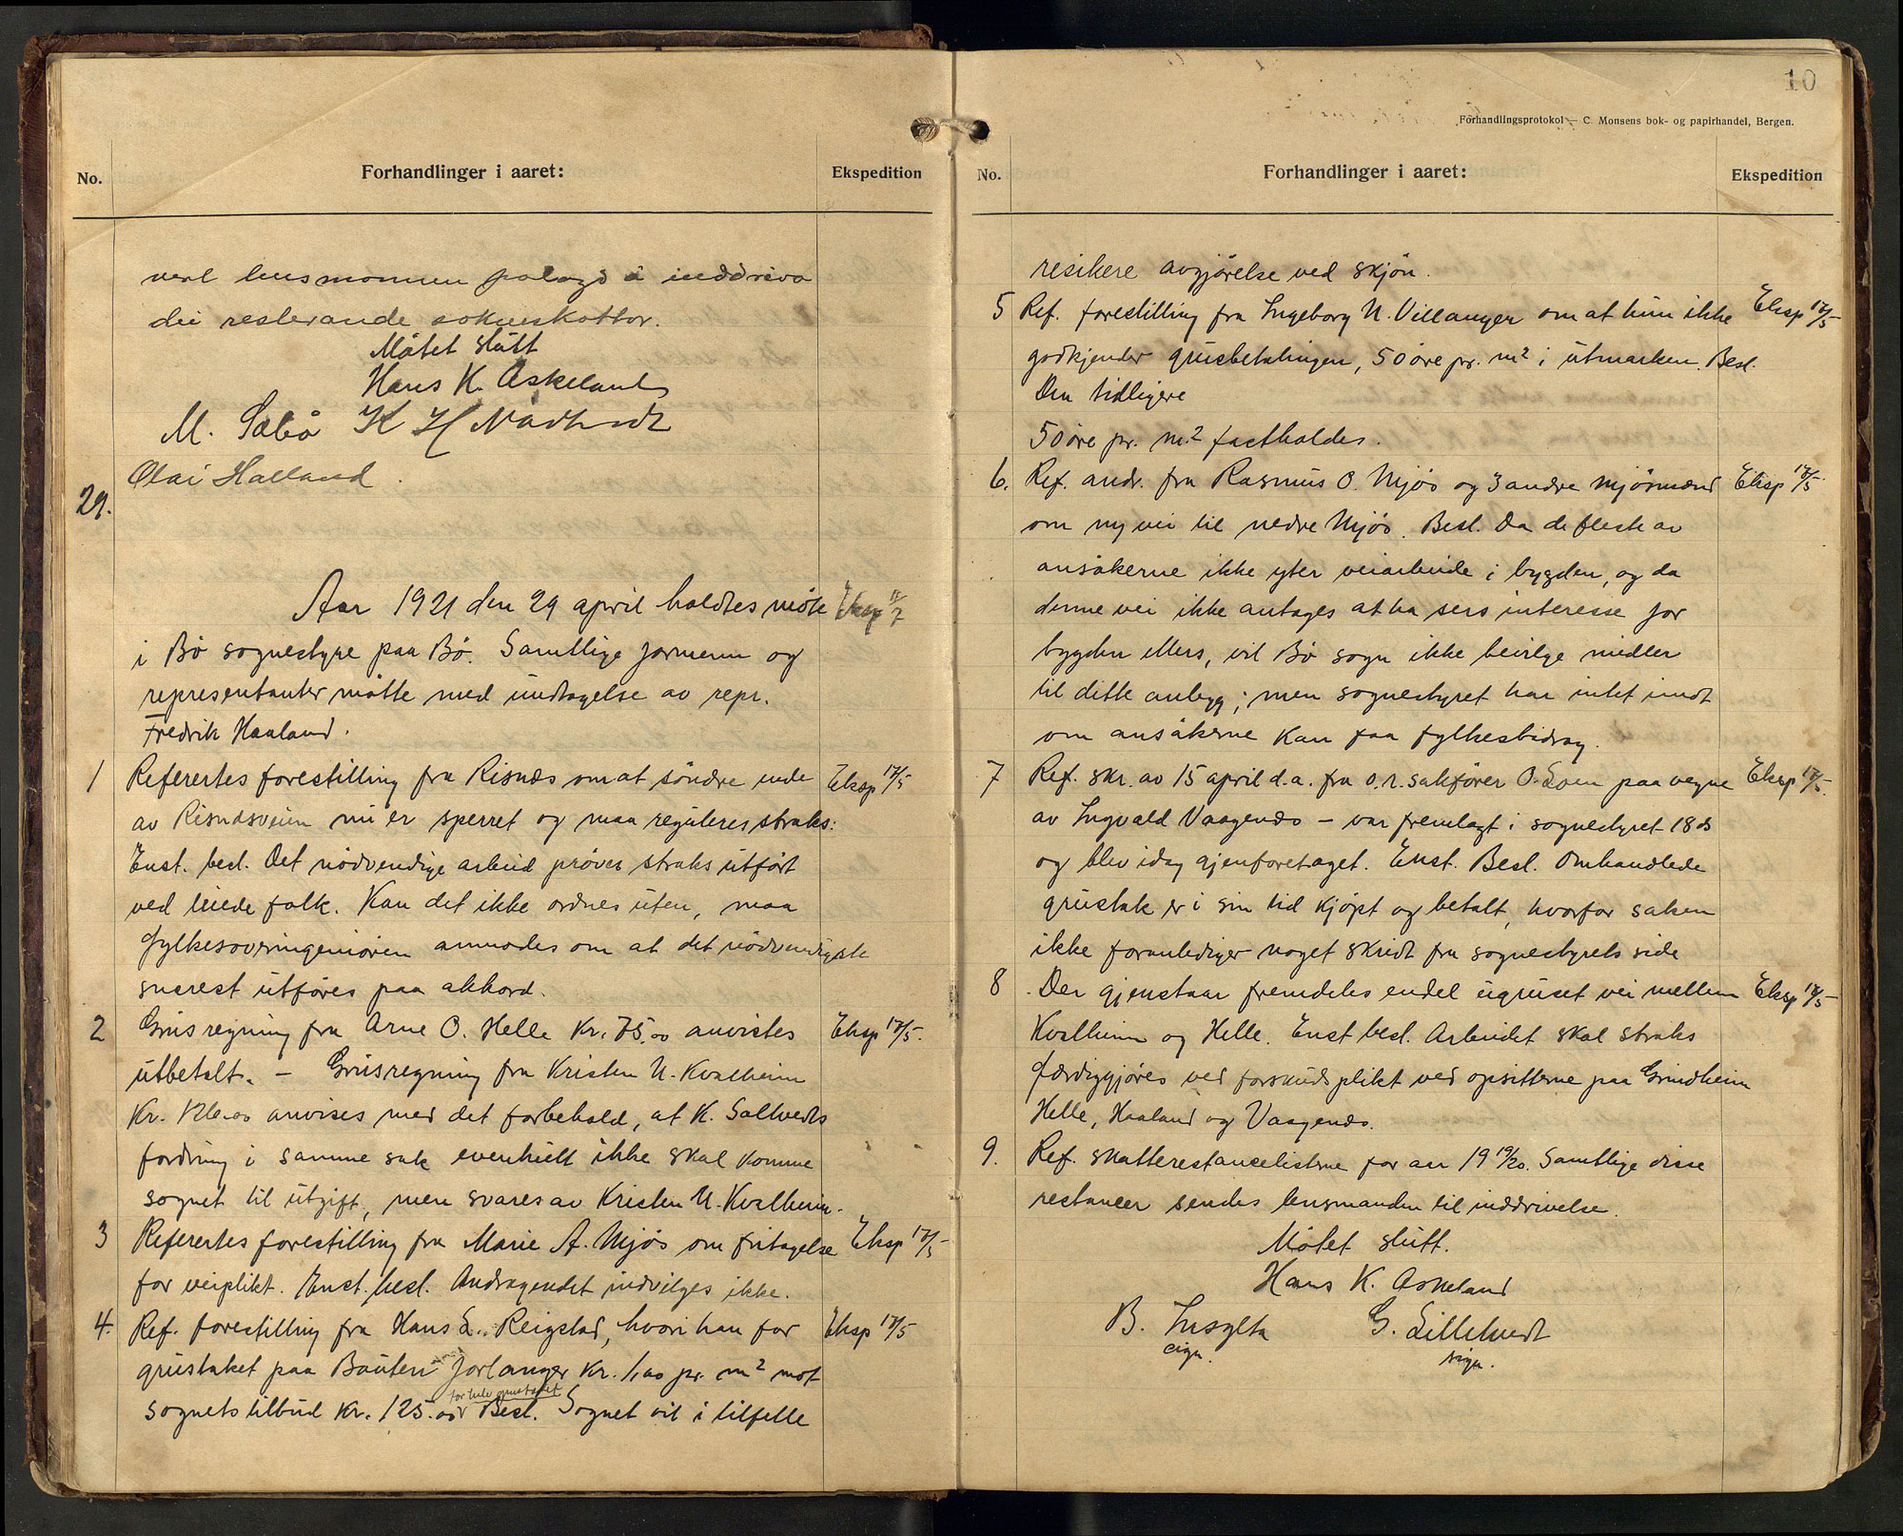 No.
Forhandlinger i aaret:
Ekspedition
vert lensmannen palagd å inddriva
dei resterande sokneskattar.
Møtet slutt
Hans K. Askeland
M. Sæbø K H Nadtvedt
Olai Halland
29.
Aar 1921 den 29 april holdtes møte Eksp
i Bø sognestyre paa Bø. Samtlige formenn og
representanter møtte med undtagelse av repr.
Fredrik Haaland.
1 Referertes forestilling fra Risnes om at søndre ende Eksp 17/5
av Risnæsveien nu er sperret og maa reguleres straks:
Enst. besl. Det nødvendige arbeid prøves straks utført
ved leiede folk. Kan det ikke ordnes uten, maa
fylkesoveringeniøren anmodes om at det nødvendigste
snarest utføres paa akkord.
2 Grusregning fra Arne O. Helle Kr. 75,00 anvistes Eksp 17/5.
utbetalt. – Grusregning fra Kristen N. Kvalheim
Kr. anvises med det forbehold, at K. Saltvedts
fordring i samme sak eventuelt ikke skal komme
sognet til utgift, men svares av Kristen N. Kvalheim.
3 Referertes forestilling fra Marie A. Mjøs om fritagelse Eksp 17/5
for veiplikt. Enst. besl. Andragendet indvilges ikke.
4. Ref. forestilling fra Hans L. Reigstad, hvori han for Eksp 17/5
grustaket paa Bauten Jorlanger Kr. 1,00 pr. m² mot
for hele grustaket
sognets tilbud Kr. 125.00 Besl. Sognet vil i tilfelle
10
Forhandlingsprotokol – C. Monsens bok- og papirhandel, Bergen.
No.
Forhandlinger i aaret:
Ekspedition
resikere avgjørelse ved skjøn.
5 Ref. forestilling fra Ingeborg N. Villanger om at hun ikke Eksp 17/5
godkjender grusbetalingen, 50 øre pr. m² i utmarken. Besl.
Den tidligere
50 øre pr. m.² fastholdes.
6. Ref. andr. fra Rasmus O. Mjøs og 3 andre Mjøsmænd Eksp 17/5.
om ny vei til nedre Mjøs. Besl. Da de fleste av
ansøkerne ikke yter veiarbeide i bygden, og da
denne vei ikke antages at ha sers interesse for
bygden ellers, vil Bø sogn ikke bevilge midler
til dette anlegg; men sognestyret har intet imot
om ansøkerne kan faa fylkesbidrag.
7 Ref. skr. av 15 april d.a. fra o.r. sakfører O. Loen paa vegne Eksp 17/5.
av Ingvald Vaagenæs – var fremlagt i sognestyret 18 ds
og blev idag gjenforetaget. Enst. Besl. Omhandlede
grustak er i sin tid kjøpt og betalt, hvorfor saken
ikke foranlediger noget skridt fra sognestyrets side
8 Der gjenstaar fremdeles endel ugruset vei mellem Eksp 17/5
Kvalheim og Helle. Enst besl. Arbeidet skal straks
færdiggjøres ved forskudsplikt ved opsitterne paa Grindheim
Helle, Haaland og Vaagenæs.
9. Ref. skatterestancelisterne for aar 19 19/20. Samtlige disse
restancer sendes lensmanden til inddrivelse.
Møtet slutt.
Hans K. Askeland
B. Insylta G. Lilletvedt
sign. sign.